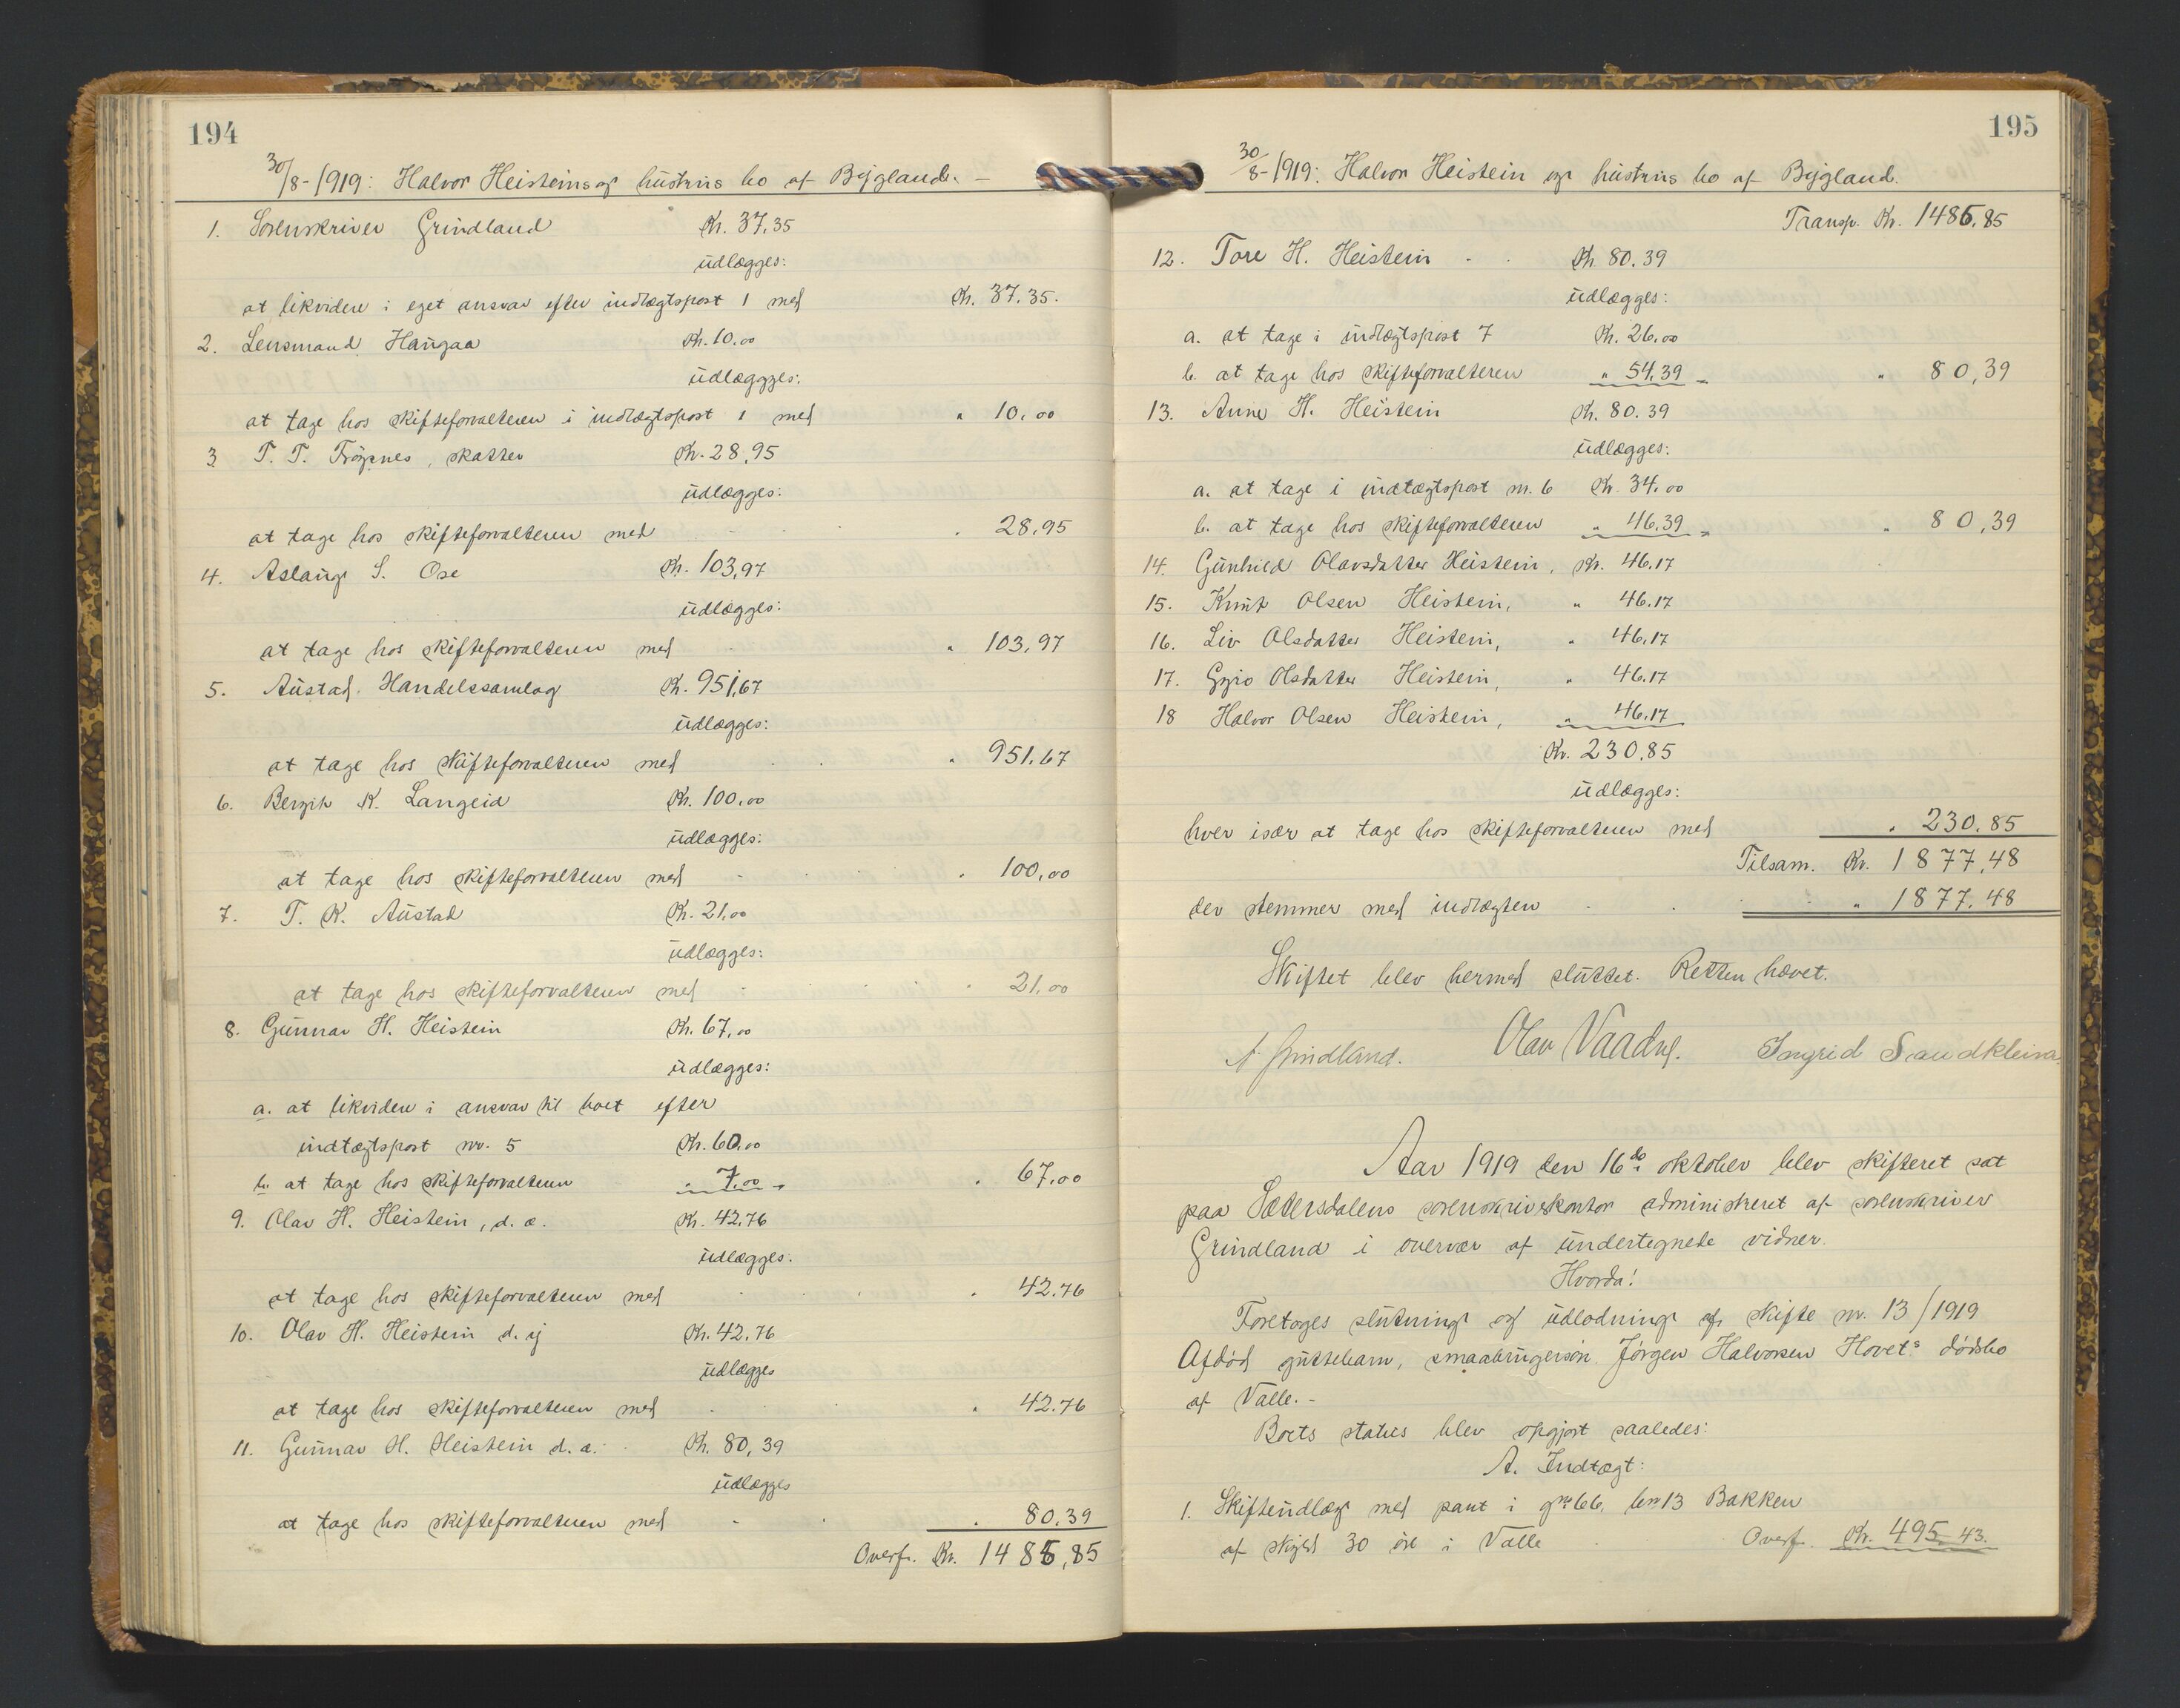 194
30/8-1919: Halvor Heisteins og hustrus bo af Bygland. -
1. Sorenskriver Grindland Kr. 37.35
udlægges:
at likvidere i eget ansvar efter indtægtspost 1 med Kr. 37.35.
2. Lensmand Haugaa Kr. 10.00
udlæggges:
at tage hos skifteforvalteren i indtægtspost 1 med " 10.00
3 T. T. Frøysnes, skatter Kr. 28,95
udlægges:
at tage hos skifteforvalteren med " 28.95
4. Aslaug S. Ose Kr. 103,97
udlægges:
at tage hos skifteforvalteren med " 103,97
5. Austad Handelssamlag Kr. 951,67
udlægges:
at tage hos skifteforvalteren med " 951.67
6. Bergit K. Langeid Kr. 100.00
udlægges:
at tage hos skifteforvalteren med " 100,00
7. T. K. Austad Kr. 21,00
udlægges:
at tage hos skifteforvalteren med " 21.00
8. Gunnar H. Heistein Kr. 67,00
udlægges:
a. at likvidere i ansvar til boet efter
indtægtspost nr. 5 Kr. 60.00
b. at tage hos skifteforvalteren " 7.00 = " 67.00
9. Olav H. Heistein, d. æ. Kr. 42.76
udlægges:
at tage hos skifteforvalteren med " 42.76
10. Olav H. Heistein d. y Kr. 42.76
udlægges
at tage hos skifteforvalteren med " 42.76
11. Gunnar H. Heistein d. æ. Kr. 80,39
udlægges
at tage hos skifteforvalteren med " 80.39
Overf. Kr. 1486,85
195
30/8-1919: Halvor Heistein og hustrus bo af Bygland.
Transp. Kr. 1486.85
12. Tore H. Heistein Kr 80.39
udlægges:
a. at tage i indtægtspost 7 Kr. 26.00
b. at tage hos skifteforvalteren " 54.39 = " 80,39
13. Anne H. Heistein Kr. 80.39
udlægges:
a. at tage i indtægtspost nr. 6 Kr. 34.00
b. at tage hos skifteforvalteren " 46.39 = " 80,39
14. Gunhild Olavsdatter Heistein, Kr. 46.17
15. Knut Olsen Heistein, " 46.17
16. Liv Olsdatter Heistein, " 46.17
17. Gyro Olsdatter Heistein, " 46.17
18 Halvor Olsen Heistein, " 46.17
Kr. 230.85
udlægges:
hver især at tage hos skifteforvalteren med " 230.85
Tilsam. Kr. 1877,48
der stemmer med indtægten " 1877.48
Skiftet blev hermed sluttet. Retten hævet.
A Grindland. Olav Vaadnes. Ingrid Sandkleiva.
Aar 1919 den 16de oktober blev skifteret sat
paa Sætersdalens sorenskriverkontor administreret af sorenskriver
Grindland i overvær af undertegnede vidner.
Hvorda!
Foretoges slutning og udlodning af skifte nr. 13/1919
Afdød guttebarn, smaabrugersøn Jørgen Halvorsen Hovets dødsbo
af Valle. -
Boets status blev opgjort saaledes:
A. Indtægt:
1. Skifteudlæg med pant i gnr 66, bnr 13 Bakken
af skyld 30 øre i Valle Overf. Kr. 495.43.